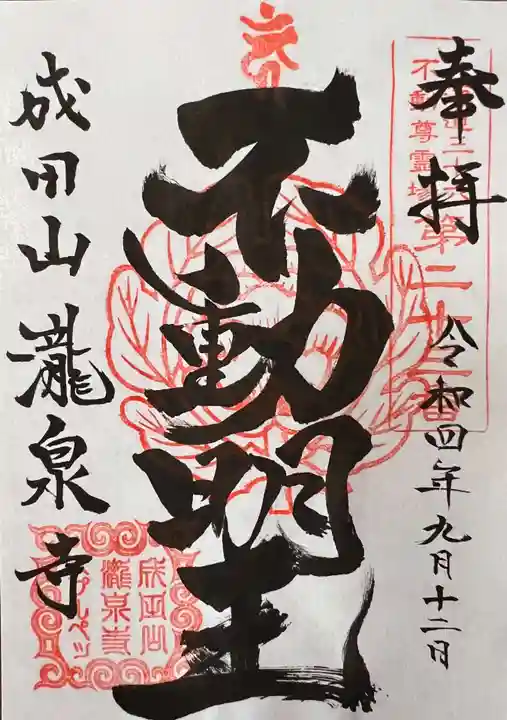 奉拝
令和四年九月十二日
不動尊霊場
第二十三番
不動明王
成田山瀧泉寺
成田山
瀧泉寺